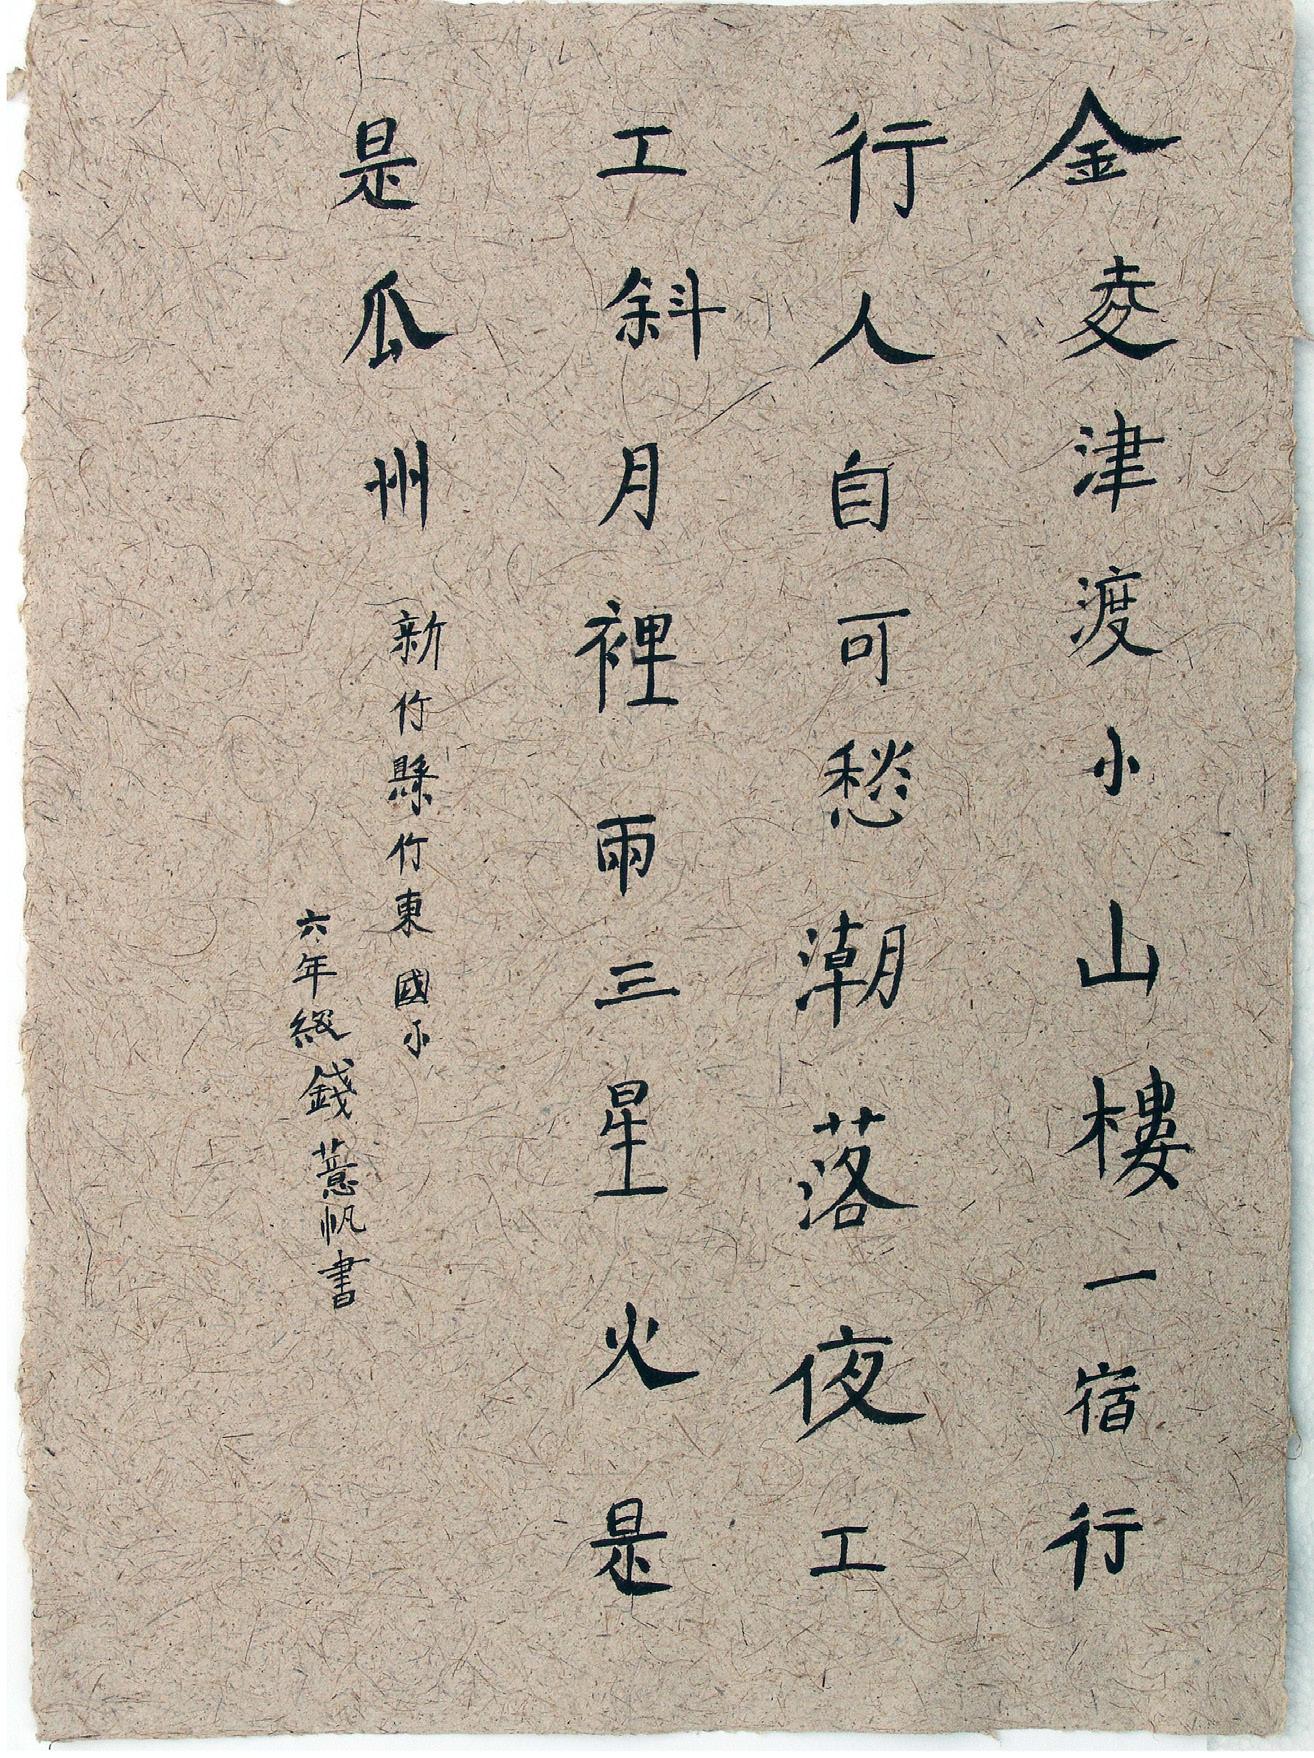 金夌津渡小山樓一宿行
行人自可愁潮落夜工
工斜月裡雨三星火是
是瓜州
新竹縣竹東國小
六年級錢薏帆書